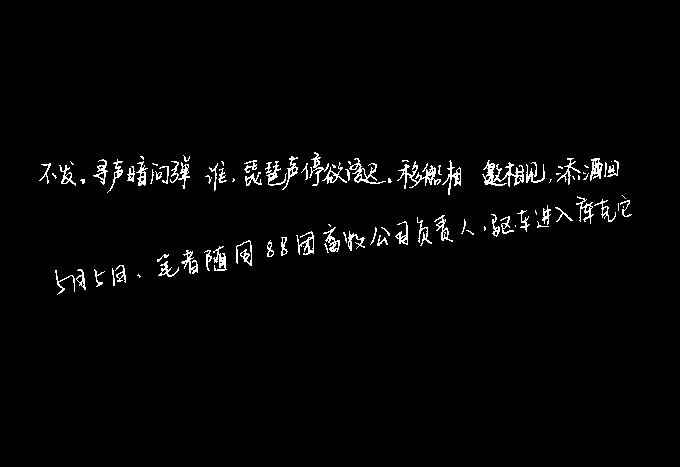 不发。寻声暗问弹 谁，琵琶声停欲语迟。移船相 邀相见，添酒回
5月5日、笔者随同88团畜牧公司负责人，驱车进入库克它